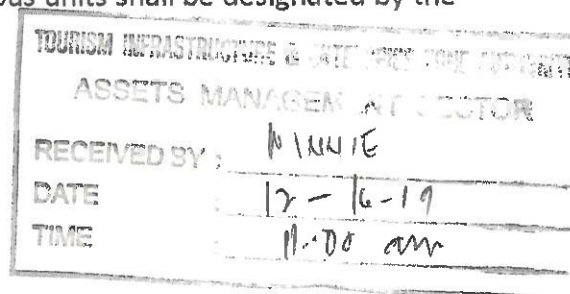 units shall be designated by the
TOURISM INFRASTRUCTURE & ZONE
ASSETS MANAGEMENT SECTOR
RECEIVED BY : MINNIE
DATE : 12-16-19
TIME : 11:00 am